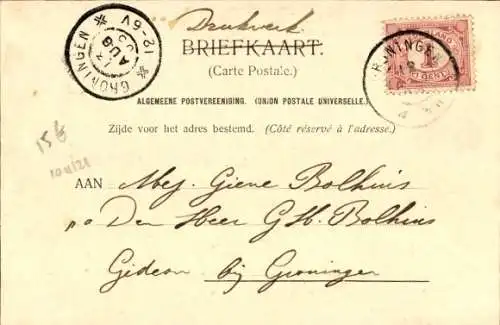 Drukwerk
BRIEFKAART.
(Carte Postale.)
ALGEMEENE POSTVEREENIGING. (UNION POSTALE UNIVERSELLE.)
Zijde voor het adres bestemd. (Côté réservé à l'adresse.)
GRONINGEN
12-6V
AUG
GRONINGEN
15
AAN Mej. Giene Bolhuis
p/a Den Heer G.H. Bolhuis
Gideon bij Groningen